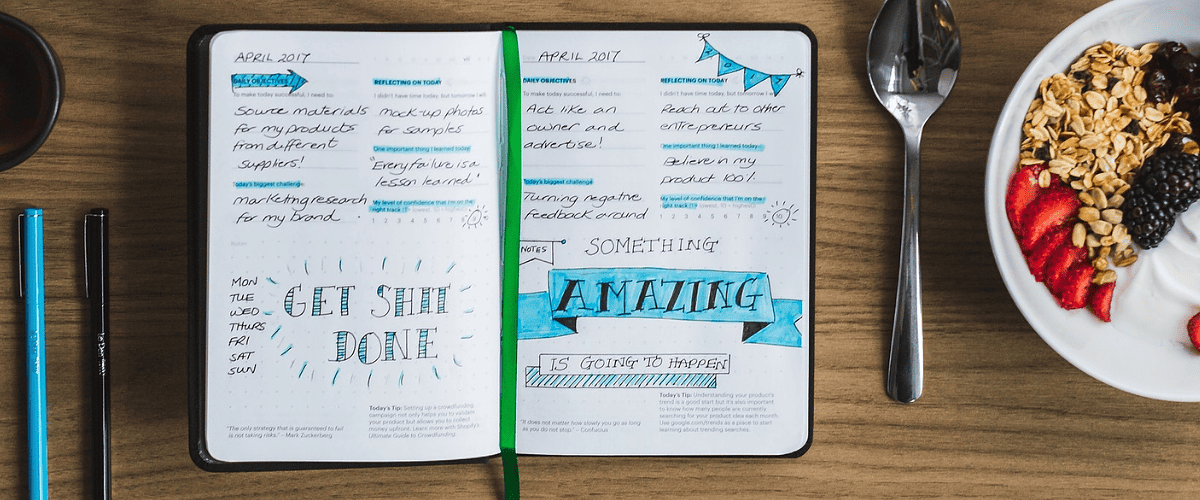 APRIL 2017
DAILY OBJECTIVES
To make today successful, I need to:
Source materials
for my products
from different
suppliers!
Today's biggest challenge
marketing research
for my brand.
REFLECTING ON TODAY
I didn't have time today, but tomorrow I wi
mock-up photos
for samples
One important thing I learned today:
"Every failure is a
lesson learned"
My level of confidence that I'm on the
right track (1 = lowest, 10 = highest)
1 2 3 4 5 6 7 8 9
Notes
MON
TUE
WED
THURS
FRI
SAT
SUN
GET SHIT
DONE
"The only strategy that is guaranteed to fail
is not taking risks." - Mark Zuckerberg
Today's Tip: Setting up a crowdfunding
campaign not only helps you to validate
your product but allows you to collect
money upfront. Learn more with Shopify's
Ultimate Guide to Crowdfunding.
APRIL 2017
DAILY OBJECTIVES
To make today successful, I need to:
Act like an
owner and
advertise!
Today's biggest challenge
Turning negative
feedback around
REFLECTING ON TODAY
I didn't have time today, but tomorrow I wi
Reach out to other
entrepreneurs
One important thing I learned today:
Believe in my
product 100%.
My level of confidence that I'm on the
right track (1 = lowest, 10 = highest)
1 2 3 4 5 6 7 8 9 10
NOTES
SOMETHING
AMAZING
IS GOING TO HAPPEN
"It does not matter how slowly you go as long
as you do not stop." - Confucius
Today's Tip: Understanding your product's
trend is a good start but it's also important
to know how many people are currently
searching for your product idea each month.
Use google.com/trends as a place to start
learning about trending searches.